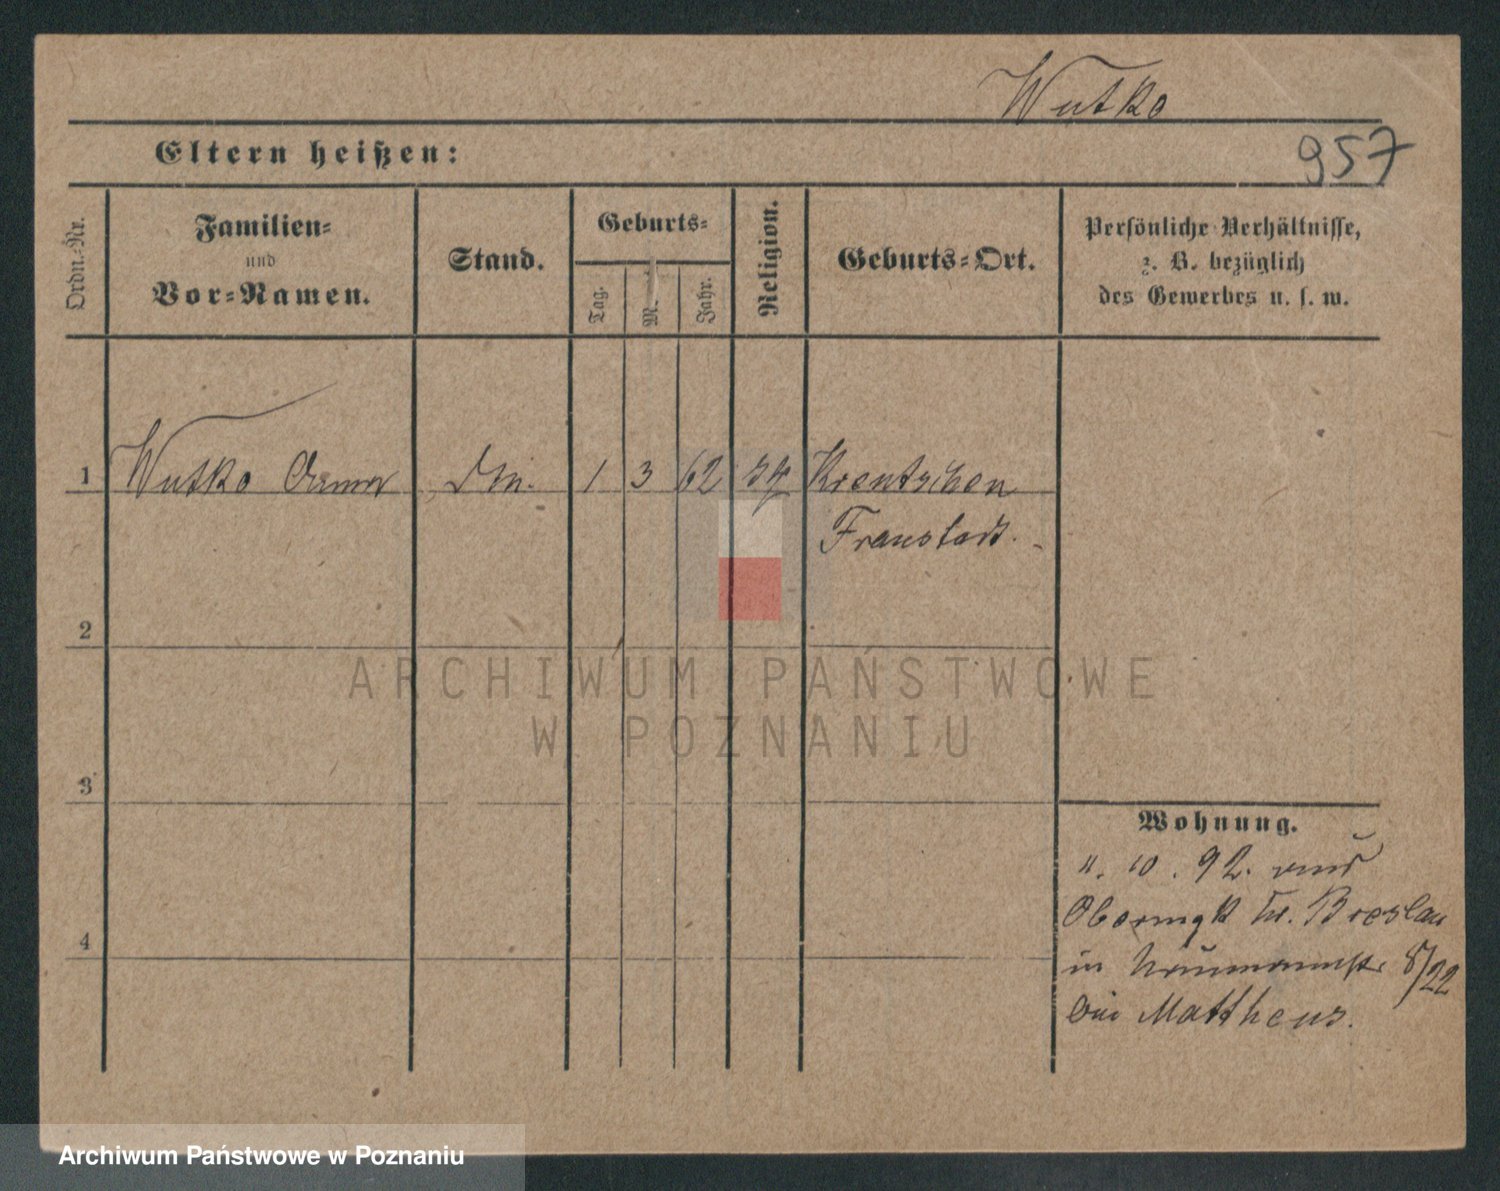 Wutko
Eltern heißen:
957
Ordn.-Nr.
Familien-
und
Vor-Namen.
Stand.
Geburts-
Tag.
M.
Jahr.
Religion.
Geburts-Ort.
Persönliche Verhältnisse,
z. B. bezüglich
des Gewerbes u. s. w.
1 Wutko Anna 1 3 62 Krentschen
Fraustadt.
2
3
4
Wohnung.
11. 10. 92. aus
Obernigk Kr. Breslau
in Naumannstr. 8/22
bei Mattheus.
ARCHIWUM PAŃSTWOWE
W POZNANIU
Archiwum Państwowe w Poznaniu